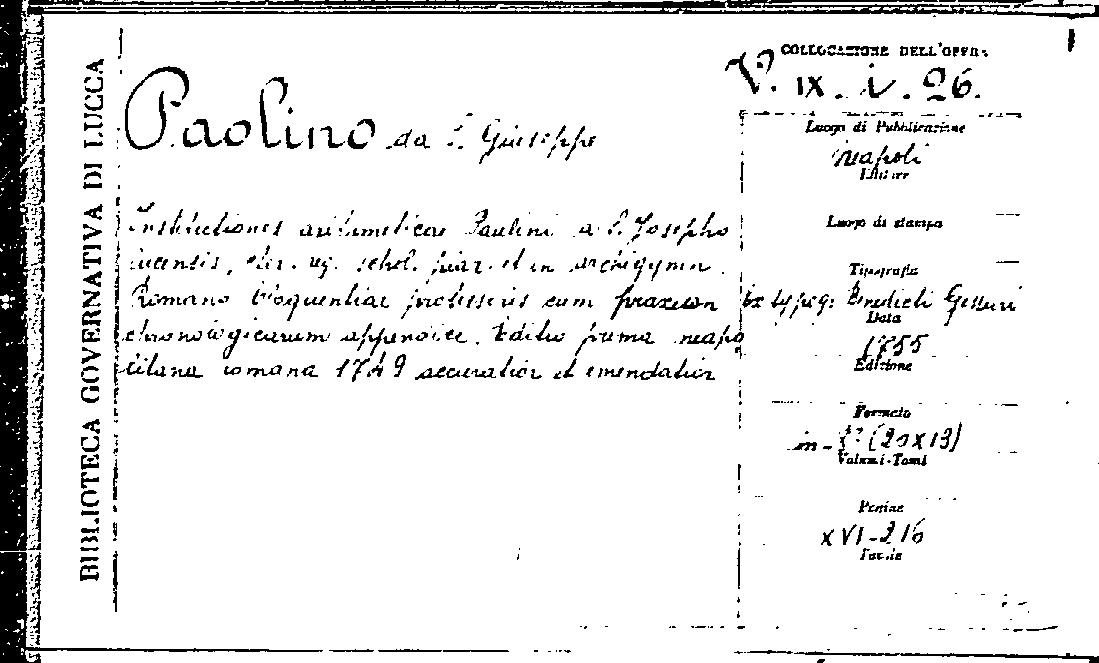 BIBLIOTECA GOVERNATIVA DI LUCCA
Paolino da S. Giuseppe
Institutiones arithmeticae Paulini a S. Josepho
lucensis, cler. reg. schol. piar. et in archigymn.
Romano eloquentiae professoris cum praxeon
chronologicarum appendice. Editio prima neapo
litana romana 1749 accuratior et emendatior
COLLOCAZIONE DELL'OPERA
V. IX. i. 26.
Luogo di Pubblicazione
Napoli
Editore
Luogo di stampa
Tipografia
Ex typog: Benedicti Gessari
Data
1755
Edizione
Formato
in-8° (20x13)
Volumi-Tomi
Pagine
XVI-216
Tavole